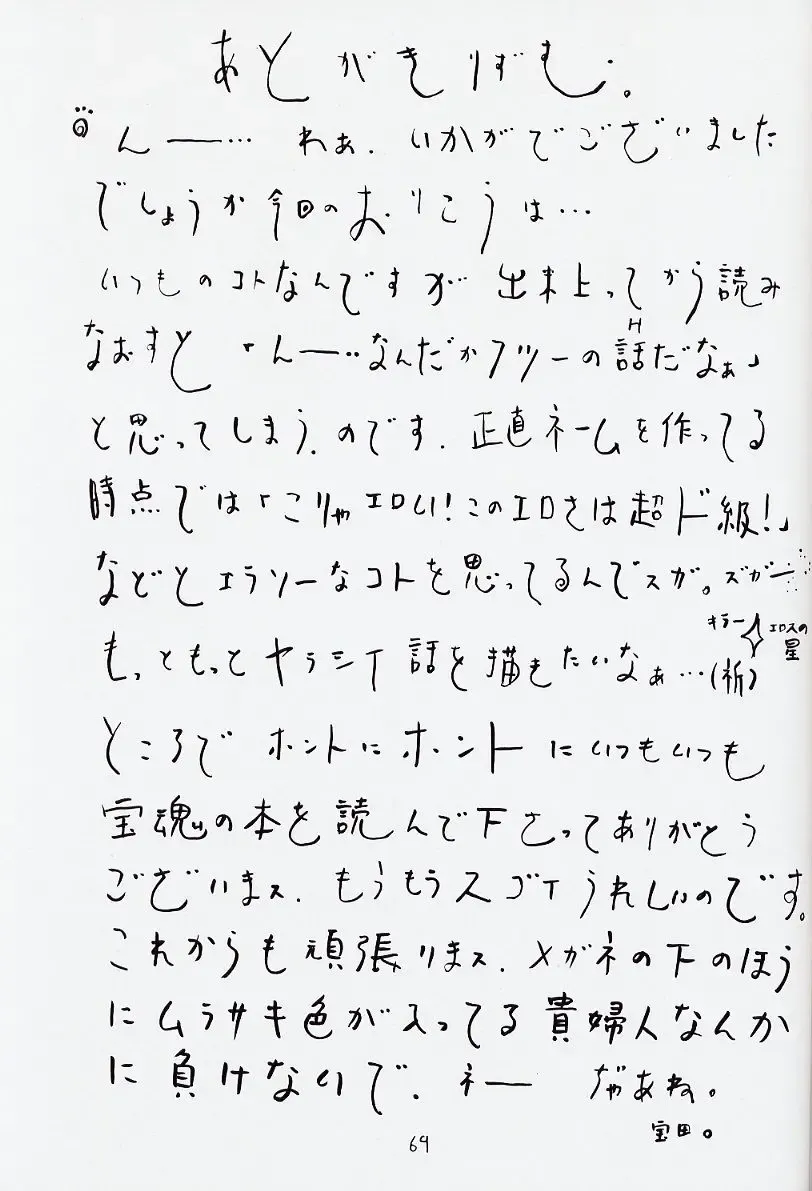 あとがきりずむ。
んー… わぁ、いかがでございました
でしょうか今回のおりこうは…
いつものコトなんですが出来上ってから読み
なおすと「んー‥なんだかフツーの話だなぁ」
H
と思ってしまう、のです、正直ネームを作ってる
時点では「こりゃエロい!このエロさは超ド級!」
などとエラソーなコトを思ってるんでスガ。ズガー
キラー
エロスの星
もっともっとヤラシイ話を描きたいなぁ…(祈)
ところでホントにホントにいつもいつも
宝魂の本を読んで下さってありがとう
ございまス、もうもうスゴイうれしいのです。
これからも頑張りまス、メガネの下のほう
にムラサキ色が入ってる貴婦人なんか
に負けないで、ネー ぢゃあね。
宝田。
64